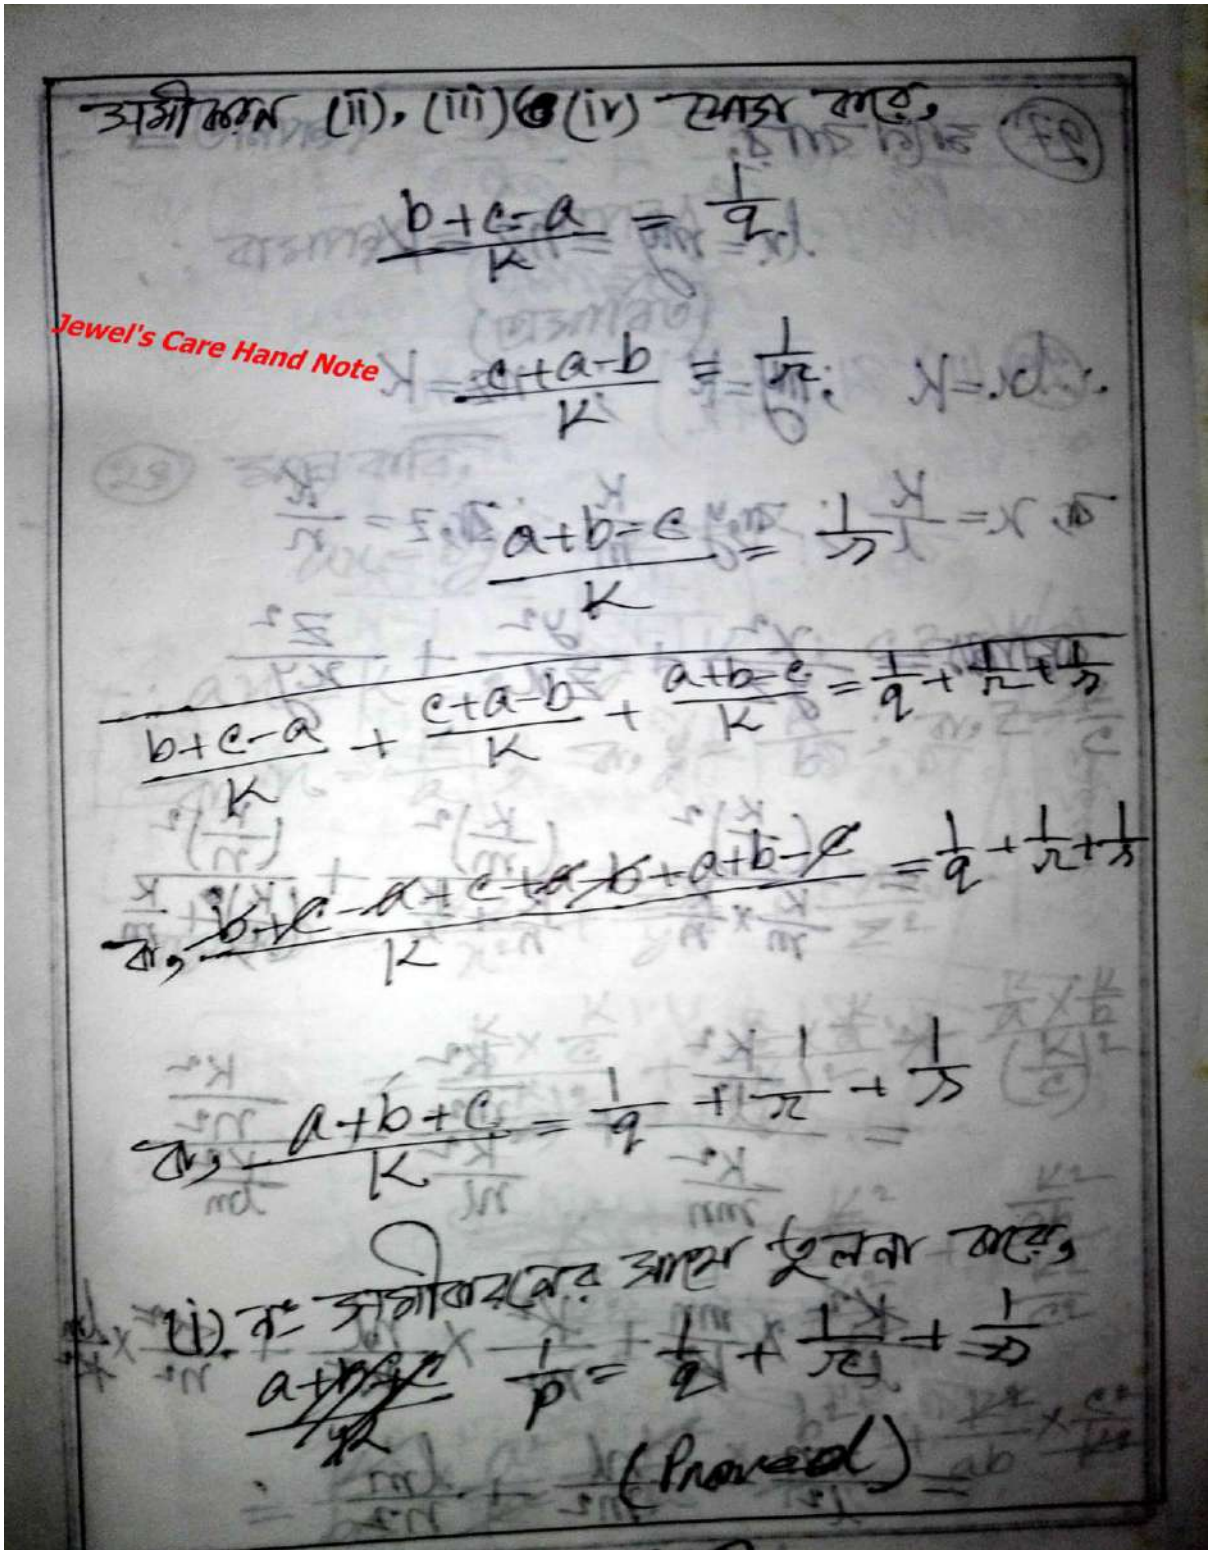 সমীকরণ (ii), (iii) ও (iv) যোগ করে,
b+c-a/K = 1/q
Jewel's Care Hand Note
c+a-b/K = 1/r
a+b-c/K = 1/s
b+c-a/K + c+a-b/K + a+b-c/K = 1/q + 1/r + 1/s
বা, b+c-a+c+a-b+a+b-c/K = 1/q + 1/r + 1/s
বা, a+b+c/K = 1/q + 1/r + 1/s
(i) নং সমীকরনের সাথে তুলনা করে,
1/p = 1/q + 1/r + 1/s
(Proved)